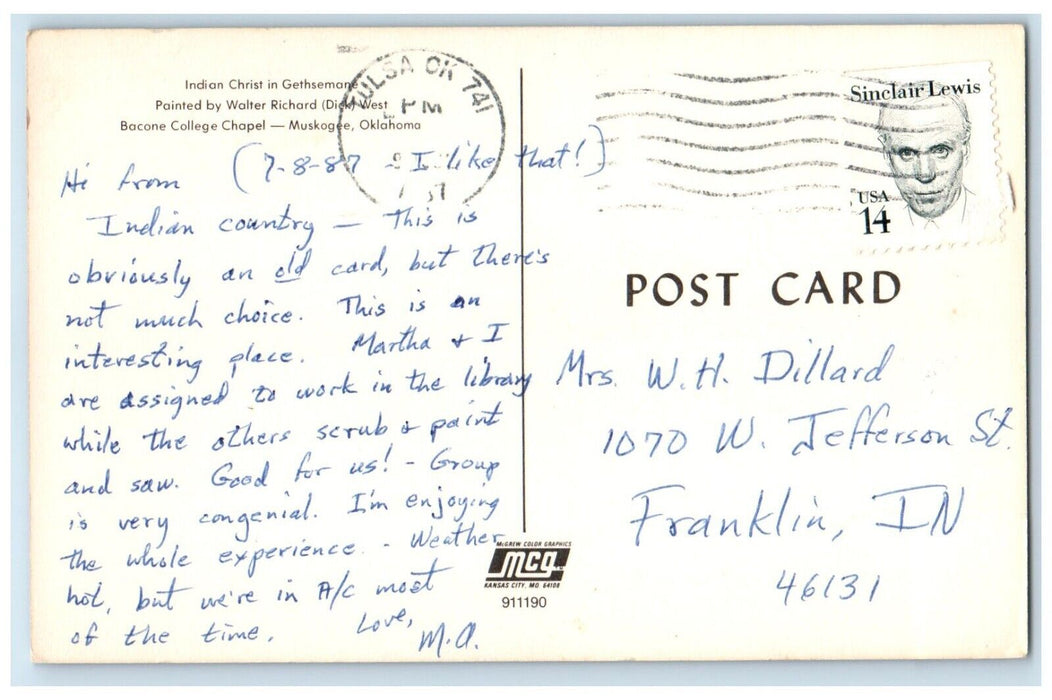 Indian Christ in Gethsemane
Painted by Walter Richard (Dick) West
Bacone College Chapel — Muskogee, Oklahoma
TULSA OK 741
PM
Sinclair Lewis
USA
14
(7-8-87 - I like that!)
Hi from
Indian country — This is
obviously an old card, but there's
not much choice. This is an
interesting place. Martha & I
are assigned to work in the library
while the others scrub & paint
and saw. Good for us! - Group
is very congenial. I'm enjoying
the whole experience. - Weather
hot, but we're in A/C most
of the time.
Love,
M.A.
POST CARD
Mrs. W.H. Dillard
1070 W. Jefferson St.
Franklin, IN
46131
McGREW COLOR GRAPHICS
mcg
KANSAS CITY, MO. 64108
911190